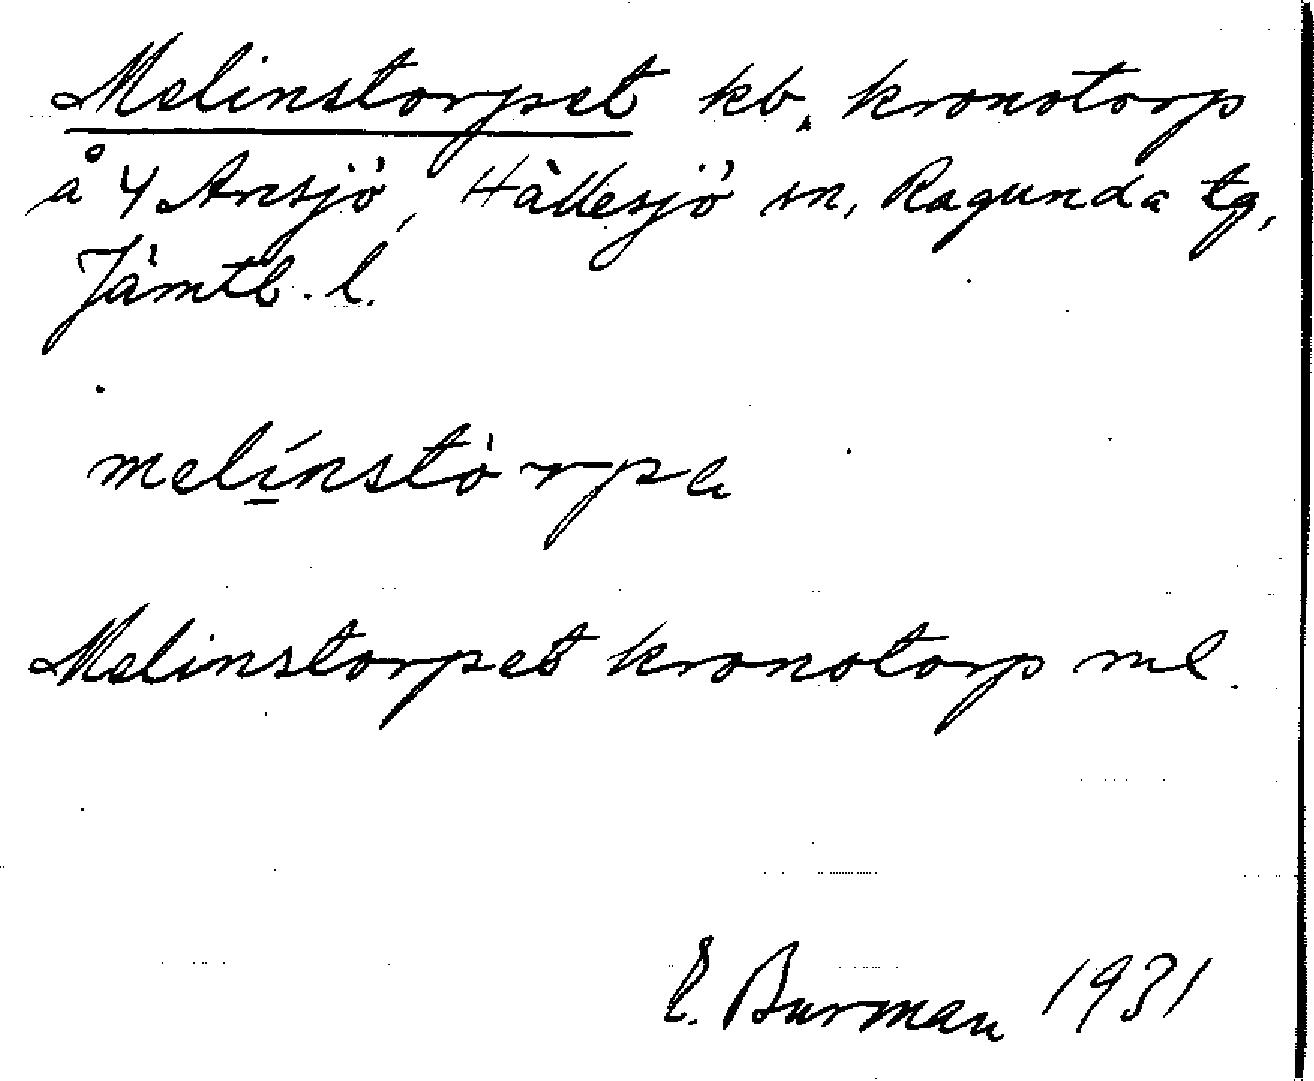 Melinstorpet kb. kronotorp
å 4 Ansjö, Hällesjö sn, Ragunda tg,
Jämtl. l.
melínstòrpe
Melinstorpet kronotorp ml
E. Burman 1931